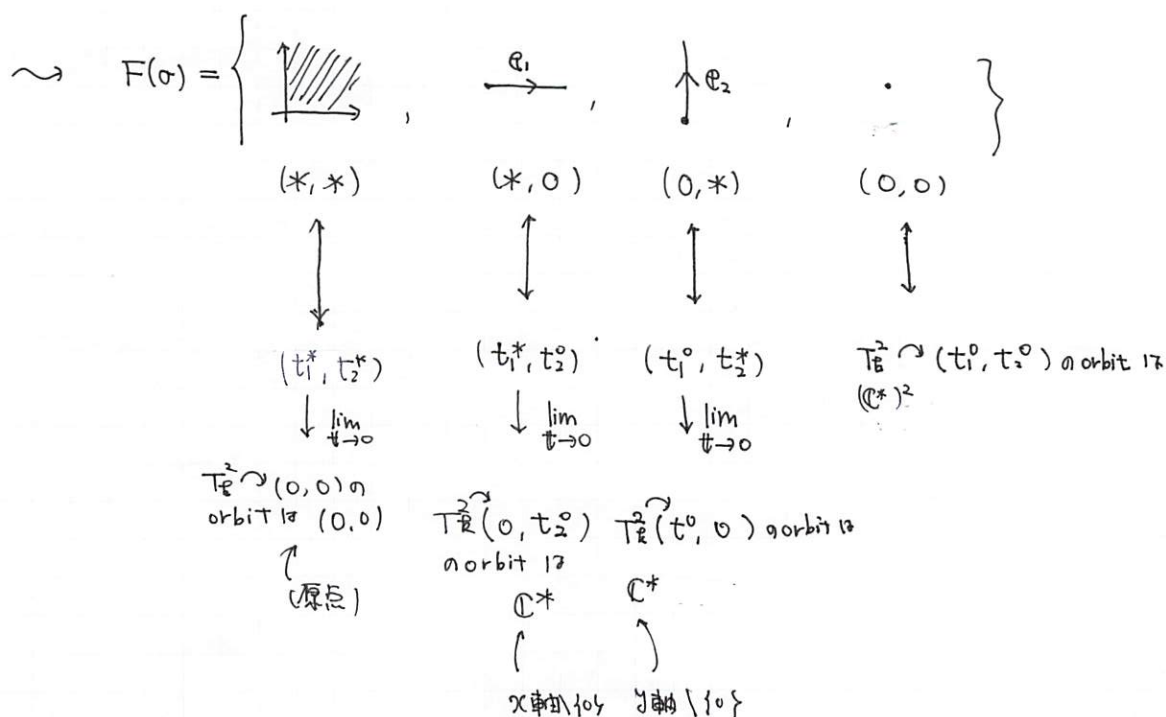 ⇝ F(σ) = { , e₁ , e₂ , }
(*, *) (*, 0) (0, *) (0, 0)
(t₁*, t₂*) (t₁*, t₂⁰) (t₁⁰, t₂*) T²_ℂ ↷ (t₁⁰, t₂⁰) の orbit は
(ℂ*)²
lim t→0 lim t→0 lim t→0
T²_ℂ ↷ (0, 0) の
orbit は (0, 0)
(原点)
T²_ℂ ↷ (0, t₂⁰)
の orbit は
ℂ*
x軸\{0}
T²_ℂ ↷ (t⁰, 0) の orbit は
ℂ*
y軸\{0}